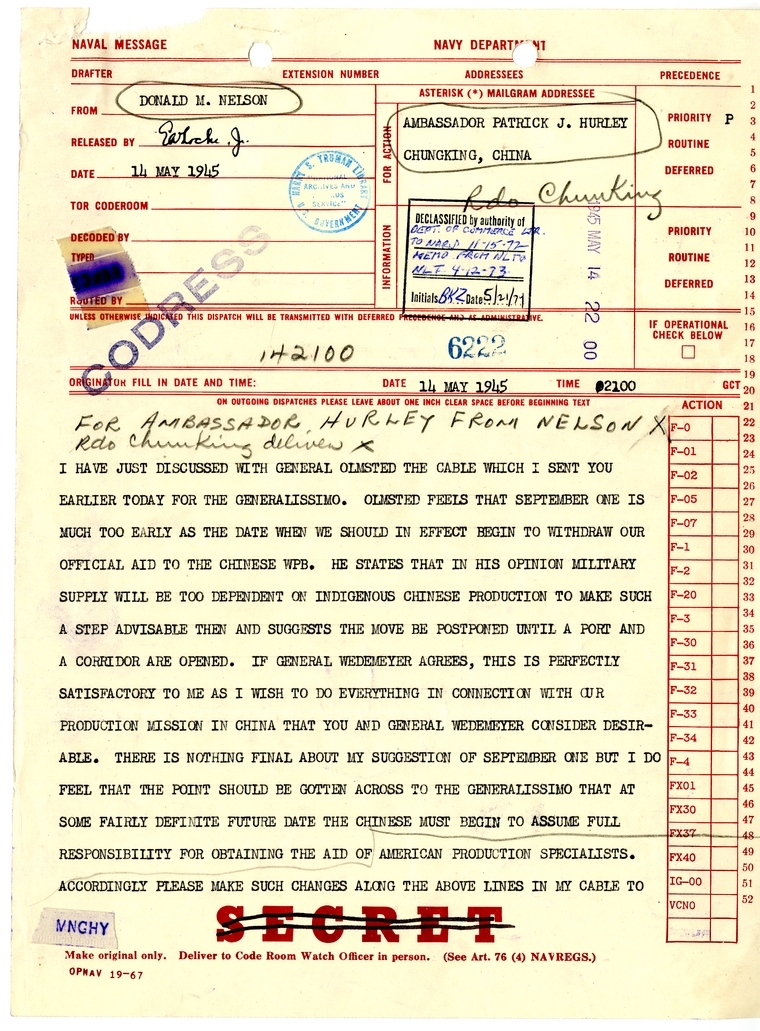 NAVAL MESSAGE
NAVY DEPARTMENT
DRAFTER
EXTENSION NUMBER
ADDRESSEES
PRECEDENCE
FROM DONALD M. NELSON
RELEASED BY
DATE 14 MAY 1945
TOR CODEROOM
DECODED BY
TYPED
ROUTED BY
CODRESS
HARRY S. TRUMAN LIBRARY
ARCHIVES AND
SERVICE"
U.S. GOVERNMENT
ASTERISK (*) MAILGRAM ADDRESSEE
FOR ACTION
AMBASSADOR PATRICK J. HURLEY
CHUNGKING, CHINA
Rdo ChunKing
INFORMATION
DECLASSIFIED by authority of
DEPT. OF COMMERCE LTR.
TO NARS 11-15-72
MEMO FROM NLT
NLT 4-12-73
Initials BKZ Date 5/21/71
1945 MAY 14 22 00
PRIORITY P
ROUTINE
DEFERRED
PRIORITY
ROUTINE
DEFERRED
UNLESS OTHERWISE INDICATED THIS DISPATCH WILL BE TRANSMITTED WITH DEFERRED PRECEDENCE AND AS ADMINISTRATIVE.
IF OPERATIONAL
CHECK BELOW
142100
6222
ORIGINATOR FILL IN DATE AND TIME:
DATE 14 MAY 1945 TIME 2100 GCT
ON OUTGOING DISPATCHES PLEASE LEAVE ABOUT ONE INCH CLEAR SPACE BEFORE BEGINNING TEXT
ACTION
FOR AMBASSADOR HURLEY FROM NELSON X
Rdo ChunKing deliver X
I HAVE JUST DISCUSSED WITH GENERAL OLMSTED THE CABLE WHICH I SENT YOU
EARLIER TODAY FOR THE GENERALISSIMO. OLMSTED FEELS THAT SEPTEMBER ONE IS
MUCH TOO EARLY AS THE DATE WHEN WE SHOULD IN EFFECT BEGIN TO WITHDRAW OUR
OFFICIAL AID TO THE CHINESE WPB. HE STATES THAT IN HIS OPINION MILITARY
SUPPLY WILL BE TOO DEPENDENT ON INDIGENOUS CHINESE PRODUCTION TO MAKE SUCH
A STEP ADVISABLE THEN AND SUGGESTS THE MOVE BE POSTPONED UNTIL A PORT AND
A CORRIDOR ARE OPENED. IF GENERAL WEDEMEYER AGREES, THIS IS PERFECTLY
SATISFACTORY TO ME AS I WISH TO DO EVERYTHING IN CONNECTION WITH OUR
PRODUCTION MISSION IN CHINA THAT YOU AND GENERAL WEDEMEYER CONSIDER DESIR-
ABLE. THERE IS NOTHING FINAL ABOUT MY SUGGESTION OF SEPTEMBER ONE BUT I DO
FEEL THAT THE POINT SHOULD BE GOTTEN ACROSS TO THE GENERALISSIMO THAT AT
SOME FAIRLY DEFINITE FUTURE DATE THE CHINESE MUST BEGIN TO ASSUME FULL
RESPONSIBILITY FOR OBTAINING THE AID OF AMERICAN PRODUCTION SPECIALISTS.
ACCORDINGLY PLEASE MAKE SUCH CHANGES ALONG THE ABOVE LINES IN MY CABLE TO
F-0
F-01
F-02
F-05
F-07
F-1
F-2
F-20
F-3
F-30
F-31
F-32
F-33
F-34
F-4
FX01
FX30
FX37
FX40
IG-00
VCNO
1
2
3
4
5
6
7
8
9
10
11
12
13
14
15
16
17
18
19
20
21
22
23
24
25
26
27
28
29
30
31
32
33
34
35
36
37
38
39
40
41
42
43
44
45
46
47
48
49
50
51
52
MNGHY
SECRET
Make original only. Deliver to Code Room Watch Officer in person. (See Art. 76 (4) NAVREGS.)
OPNAV 19-67